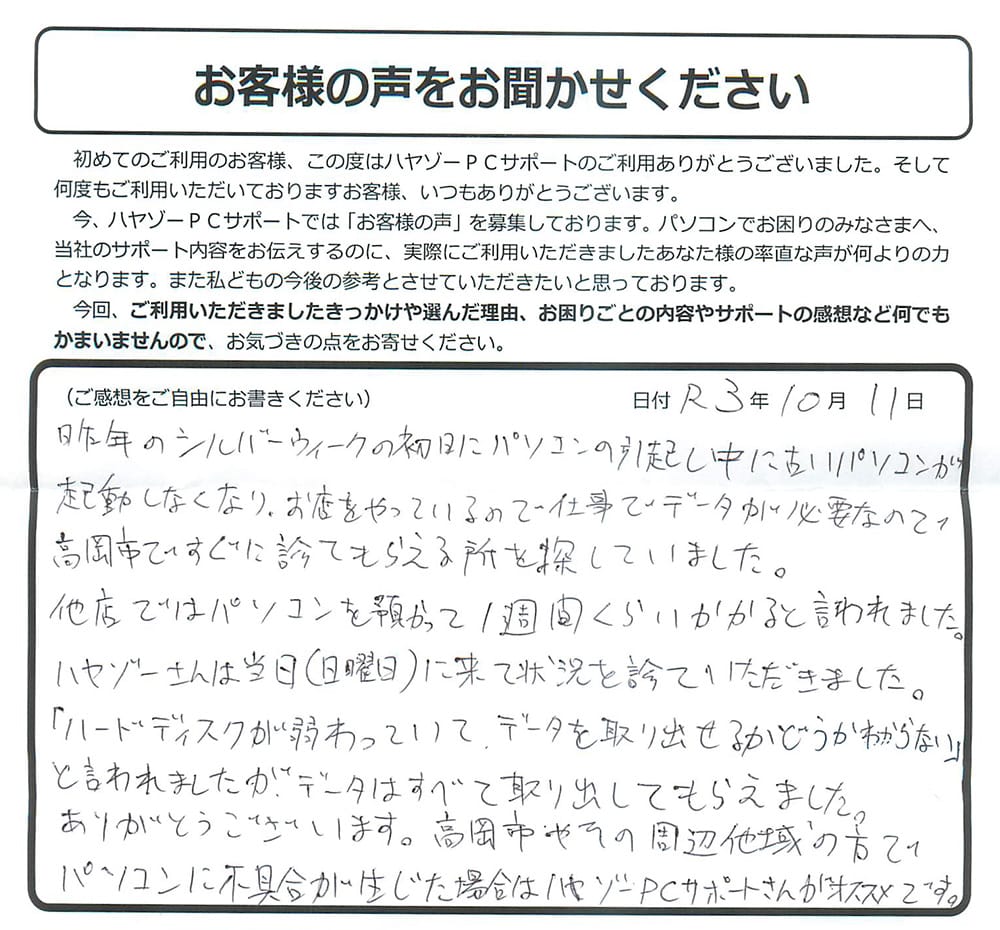 お客様の声をお聞かせください
初めてのご利用のお客様、この度はハヤゾーPCサポートのご利用ありがとうございました。そして
何度もご利用いただいておりますお客様、いつもありがとうございます。
今、ハヤゾーPCサポートでは「お客様の声」を募集しております。パソコンでお困りのみなさまへ、
当社のサポート内容をお伝えするのに、実際にご利用いただきましたあなた様の率直な声が何よりの力
となります。また私どもの今後の参考とさせていただきたいと思っております。
今回、ご利用いただきましたきっかけや選んだ理由、お困りごとの内容やサポートの感想など何でも
かまいませんので、お気づきの点をお寄せください。
（ご感想をご自由にお書きください） 日付 R3年10月11日
昨年のシルバーウィークの初日にパソコンの引起し中に古いパソコンが
起動しなくなり、お店をやっているので仕事でデータが必要なので
高岡市ですぐに診てもらえる所を探していました。
他店ではパソコンを預かって1週間くらいかかると言われました。
ハヤゾーさんは当日(日曜日)に来て状況を診ていただきました。
「ハードディスクが弱わっていて、データを取り出せるかどうかわからない」
と言われましたが、データはすべて取り出してもらえました。
ありがとうございます。高岡市やその周辺他域の方で
パソコンに不具合が生じた場合はハヤゾーPCサポートさんがオススメです。